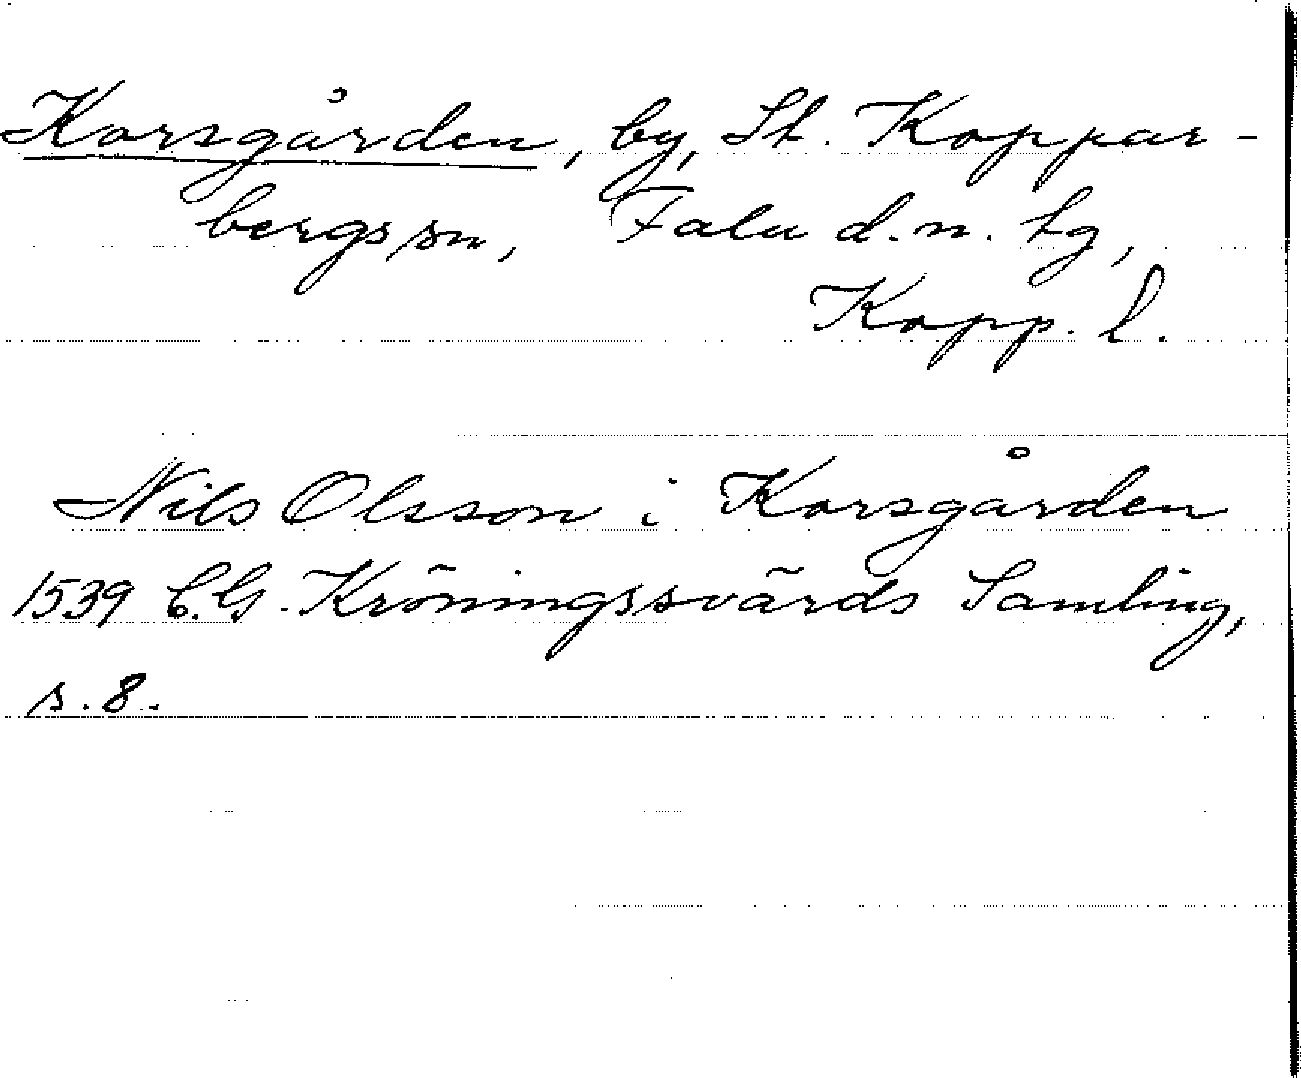 Korsgården, by, St. Koppar-
bergs sn, Falu d.n. tg,
Kopp. l.
Nils Olsson i Korsgården
1539 C.G. Kröningssvärds Samling,
s. 8.